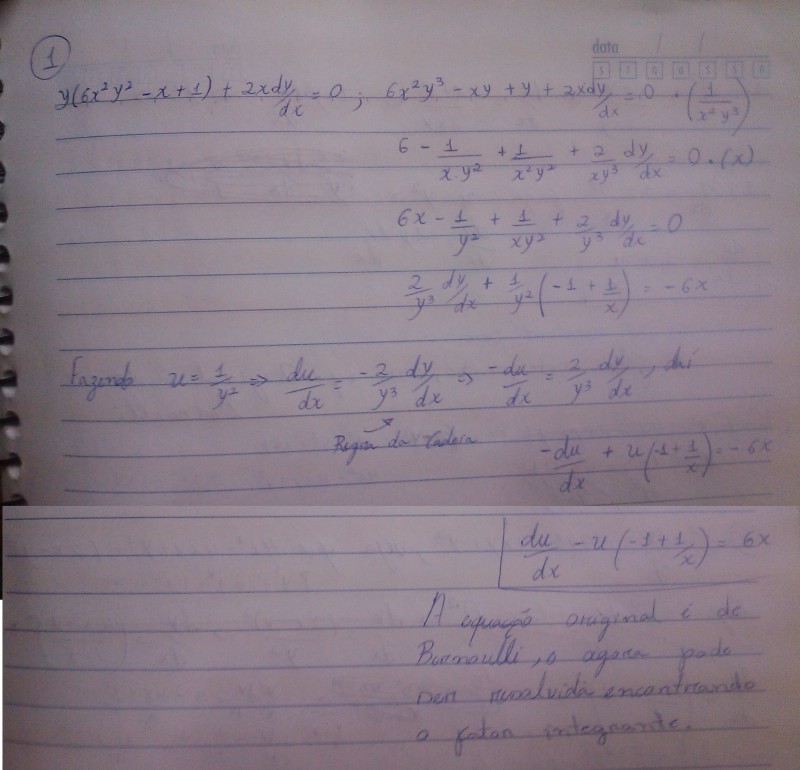 1
data / /
S T Q Q S S D
y(6x²y² - x + 1) + 2x dy/dx = 0 ; 6x²y³ - xy + y + 2x dy/dx = 0 · (1/x²y³)
6 - 1/x.y² + 1/x²y² + 2/xy³ dy/dx = 0 · (x)
6x - 1/y² + 1/xy² + 2/y³ dy/dx = 0
2/y³ dy/dx + 1/y² (-1 + 1/x) = -6x
Fazendo u = 1/y² ⇒ du/dx = -2/y³ dy/dx ⇒ -du/dx = 2/y³ dy/dx, daí
Regra da Cadeia
-du/dx + u(-1 + 1/x) = -6x
du/dx - u(-1 + 1/x) = 6x
A equação original é de
Bernoulli, e agora pode
ser resolvida encontrando
o fator integrante.